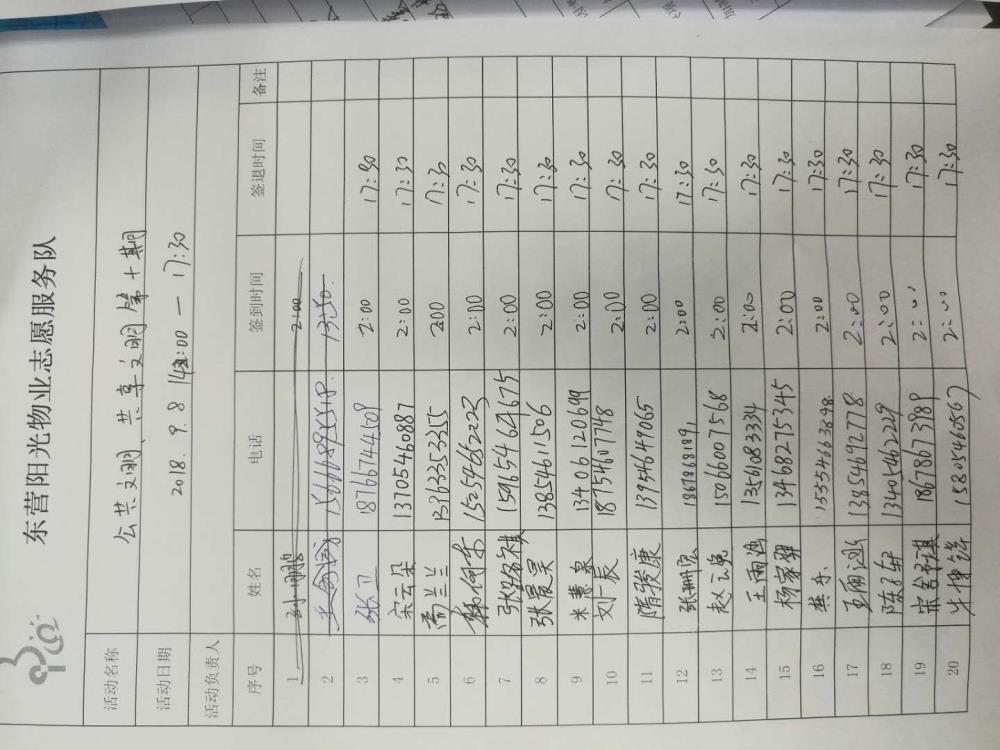 东营阳光物业志愿服务队
活动名称 公共文明 共享文明 第十期
活动日期 2018.9.8 14:00 — 17:30
活动负责人
序号 姓名 电话 签到时间 签退时间 备注
1 2:00
2 13:50
3 张卫 18766744509 2:00 17:30
4 宋云朵 13705460887 2:00 17:30
5 兰兰 2:00 17:30
6 15254662223 2:00 17:30
7 15965464675 2:00 17:30
8 张景昊 13854611506 2:00 17:30
9 米慧泉 13406120699 2:00 17:30
10 刘一辰 18754607748 2:00 17:30
11 隋骏康 13954649065 2:00 17:30
12 2:00 17:30
13 赵云逸 15066007568 2:00 17:30
14 王雨涵 13561083334 2:00 17:30
15 杨家翼 13468275345 2:00 17:30
16 15554663898 2:00 17:30
17 13854692778 2:00 17:30
18 13405462229 2:00 17:30
19 18678673989 2:00 17:30
20 15805460567 2:00 17:30